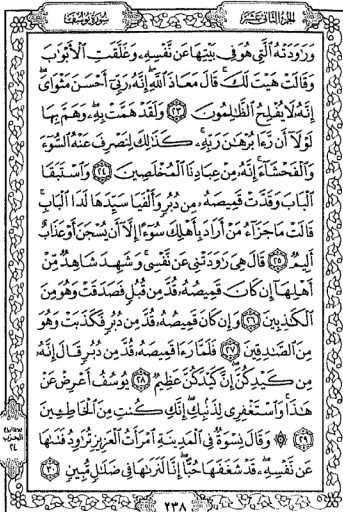 الجزء الثاني عشر
سورة يوسف
وَرَٰوَدَتْهُ ٱلَّتِي هُوَ فِي بَيْتِهَا عَن نَّفْسِهِۦ وَغَلَّقَتِ ٱلْأَبْوَٰبَ
وَقَالَتْ هَيْتَ لَكَ ۚ قَالَ مَعَاذَ ٱللَّهِ ۖ إِنَّهُۥ رَبِّيٓ أَحْسَنَ مَثْوَايَ ۖ
إِنَّهُۥ لَا يُفْلِحُ ٱلظَّٰلِمُونَ ٢٣ وَلَقَدْ هَمَّتْ بِهِۦ ۖ وَهَمَّ بِهَا
لَوْلَآ أَن رَّءَا بُرْهَٰنَ رَبِّهِۦ ۚ كَذَٰلِكَ لِنَصْرِفَ عَنْهُ ٱلسُّوٓءَ
وَٱلْفَحْشَآءَ ۚ إِنَّهُۥ مِنْ عِبَادِنَا ٱلْمُخْلَصِينَ ٢٤ وَٱسْتَبَقَا
ٱلْبَابَ وَقَدَّتْ قَمِيصَهُۥ مِن دُبُرٍ وَأَلْفَيَا سَيِّدَهَا لَدَا ٱلْبَابِ ۚ
قَالَتْ مَا جَزَآءُ مَنْ أَرَادَ بِأَهْلِكَ سُوٓءًا إِلَّآ أَن يُسْجَنَ أَوْ عَذَابٌ
أَلِيمٌ ٢٥ قَالَ هِيَ رَٰوَدَتْنِي عَن نَّفْسِي ۚ وَشَهِدَ شَاهِدٌ مِّنْ
أَهْلِهَآ إِن كَانَ قَمِيصُهُۥ قُدَّ مِن قُبُلٍ فَصَدَقَتْ وَهُوَ مِنَ
ٱلْكَٰذِبِينَ ٢٦ وَإِن كَانَ قَمِيصُهُۥ قُدَّ مِن دُبُرٍ فَكَذَبَتْ وَهُوَ
مِنَ ٱلصَّٰدِقِينَ ٢٧ فَلَمَّا رَءَا قَمِيصَهُۥ قُدَّ مِن دُبُرٍ قَالَ إِنَّهُۥ
مِن كَيْدِكُنَّ ۖ إِنَّ كَيْدَكُنَّ عَظِيمٌ ٢٨ يُوسُفُ أَعْرِضْ عَنْ
هَٰذَا ۚ وَٱسْتَغْفِرِي لِذَنۢبِكِ ۖ إِنَّكِ كُنتِ مِنَ ٱلْخَاطِـِٔينَ
٢٩ ۞ وَقَالَ نِسْوَةٌ فِي ٱلْمَدِينَةِ ٱمْرَأَتُ ٱلْعَزِيزِ تُرَٰوِدُ فَتَىٰهَا
عَن نَّفْسِهِۦ ۖ قَدْ شَغَفَهَا حُبًّا ۖ إِنَّا لَنَرَىٰهَا فِي ضَلَٰلٍ مُّبِينٍ ٣٠
الحزب
٢٤
٢٣٨